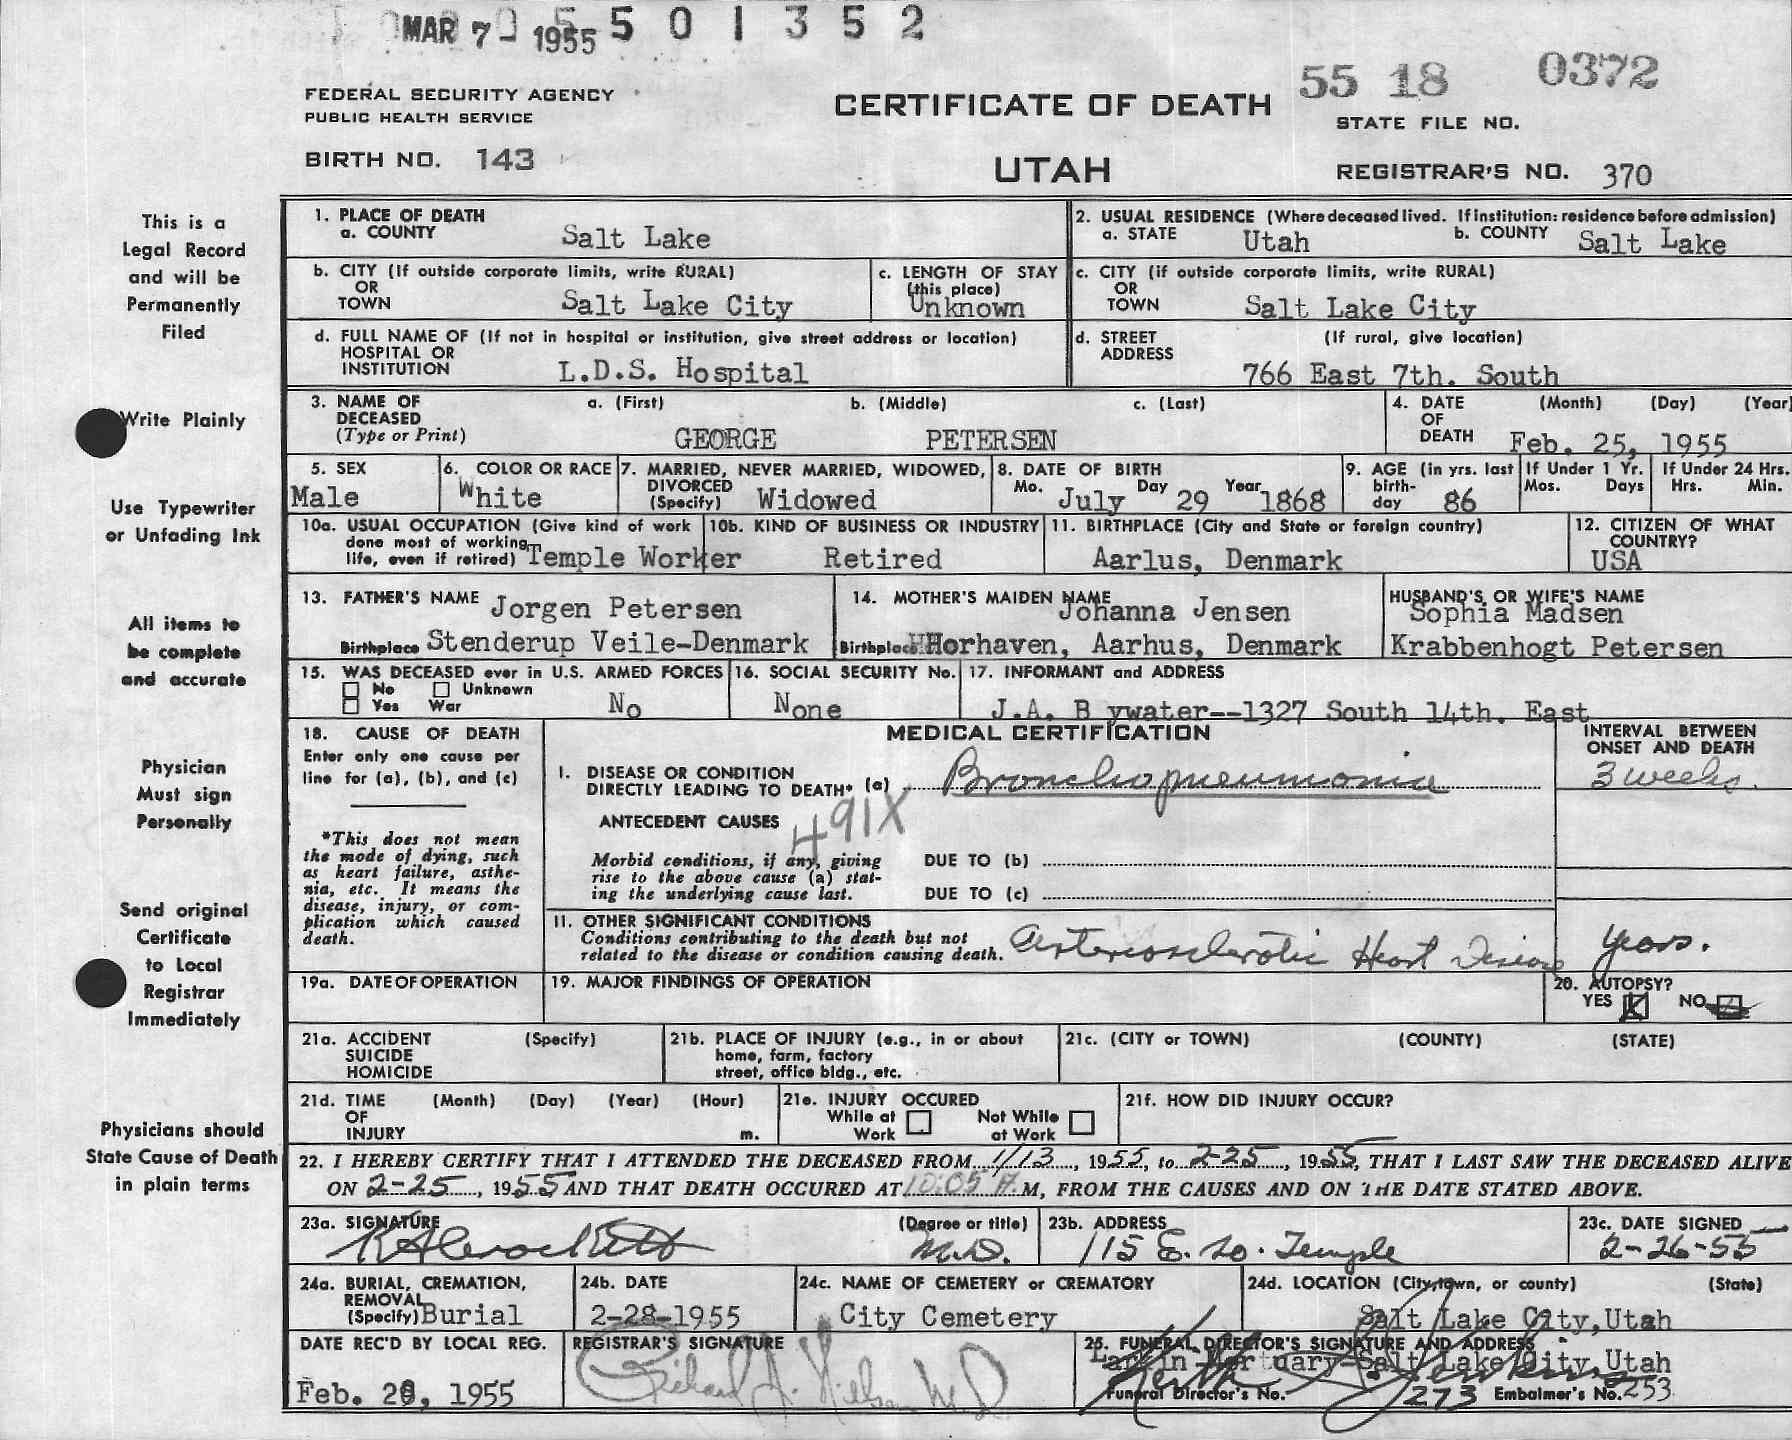 MAR 7 1955 5 0 1 3 5 2
55 18 0372
FEDERAL SECURITY AGENCY
PUBLIC HEALTH SERVICE
CERTIFICATE OF DEATH
STATE FILE NO.
BIRTH NO. 143
UTAH
REGISTRAR'S NO. 370
This is a
Legal Record
and will be
Permanently
Filed
Write Plainly
Use Typewriter
or Unfading Ink
All items to
be complete
and accurate
Physician
Must sign
Personally
Send original
Certificate
to Local
Registrar
Immediately
Physicians should
State Cause of Death
in plain terms
1. PLACE OF DEATH
a. COUNTY Salt Lake
2. USUAL RESIDENCE (Where deceased lived. If institution: residence before admission)
a. STATE Utah b. COUNTY Salt Lake
b. CITY (If outside corporate limits, write RURAL)
OR
TOWN Salt Lake City
c. LENGTH OF STAY
(this place)
Unknown
c. CITY (if outside corporate limits, write RURAL)
OR
TOWN Salt Lake City
d. FULL NAME OF (If not in hospital or institution, give street address or location)
HOSPITAL OR
INSTITUTION L.D.S. Hospital
d. STREET (If rural, give location)
ADDRESS
766 East 7th. South
3. NAME OF a. (First) b. (Middle) c. (Last)
DECEASED
(Type or Print) GEORGE PETERSEN
4. DATE (Month) (Day) (Year)
OF
DEATH Feb. 25, 1955
5. SEX
Male
6. COLOR OR RACE
White
7. MARRIED, NEVER MARRIED, WIDOWED,
DIVORCED
(Specify) Widowed
8. DATE OF BIRTH
Mo. July Day 29 Year 1868
9. AGE (in yrs. last
birth-
day 86
If Under 1 Yr.
Mos. Days
If Under 24 Hrs.
Hrs. Min.
10a. USUAL OCCUPATION (Give kind of work
done most of working
life, even if retired) Temple Worker
10b. KIND OF BUSINESS OR INDUSTRY
Retired
11. BIRTHPLACE (City and State or foreign country)
Aarlus, Denmark
12. CITIZEN OF WHAT
COUNTRY?
USA
13. FATHER'S NAME Jorgen Petersen
Birthplace Stenderup Veile-Denmark
14. MOTHER'S MAIDEN NAME
Johanna Jensen
Birthplace Horhaven, Aarhus, Denmark
HUSBAND'S OR WIFE'S NAME
Sophia Madsen
Krabbenhogt Petersen
15. WAS DECEASED ever in U.S. ARMED FORCES
No Unknown
Yes War No
16. SOCIAL SECURITY No.
None
17. INFORMANT and ADDRESS
J.A. B ywater--1327 South 14th. East
18. CAUSE OF DEATH
Enter only one cause per
line for (a), (b), and (c)
*This does not mean
the mode of dying, such
as heart failure, asthe-
nia, etc. It means the
disease, injury, or com-
plication which caused
death.
MEDICAL CERTIFICATION
INTERVAL BETWEEN
ONSET AND DEATH
I. DISEASE OR CONDITION
DIRECTLY LEADING TO DEATH* (a) Bronchopneumonia
3 weeks.
ANTECEDENT CAUSES
491X
Morbid conditions, if any, giving
rise to the above cause (a) stat-
ing the underlying cause last.
DUE TO (b)
DUE TO (c)
II. OTHER SIGNIFICANT CONDITIONS
Conditions contributing to the death but not
related to the disease or condition causing death.
Arteriosclerotic Heart Disease
years.
19a. DATE OF OPERATION
19. MAJOR FINDINGS OF OPERATION
20. AUTOPSY?
YES NO
21a. ACCIDENT (Specify)
SUICIDE
HOMICIDE
21b. PLACE OF INJURY (e.g., in or about
home, farm, factory
street, office bldg., etc.
21c. (CITY or TOWN) (COUNTY) (STATE)
21d. TIME (Month) (Day) (Year) (Hour)
OF
INJURY m.
21e. INJURY OCCURED
While at Not While
Work at Work
21f. HOW DID INJURY OCCUR?
22. I HEREBY CERTIFY THAT I ATTENDED THE DECEASED FROM 1/13, 1955, to 2-25, 1955, THAT I LAST SAW THE DECEASED ALIVE
ON 2-25, 1955 AND THAT DEATH OCCURED AT 10:05 A.M, FROM THE CAUSES AND ON THE DATE STATED ABOVE.
23a. SIGNATURE (Degree or title)
M.D.
23b. ADDRESS
115 E. So. Temple
23c. DATE SIGNED
2-26-55
24a. BURIAL, CREMATION,
REMOVAL
(Specify) Burial
24b. DATE
2-28-1955
24c. NAME OF CEMETERY or CREMATORY
City Cemetery
24d. LOCATION (City, town, or county) (State)
Salt Lake City, Utah
DATE REC'D BY LOCAL REG.
Feb. 28, 1955
REGISTRAR'S SIGNATURE
25. FUNERAL DIRECTOR'S SIGNATURE AND ADDRESS
Larkin Mortuary-Salt Lake City, Utah
Funeral Director's No. 273 Embalmer's No. 253